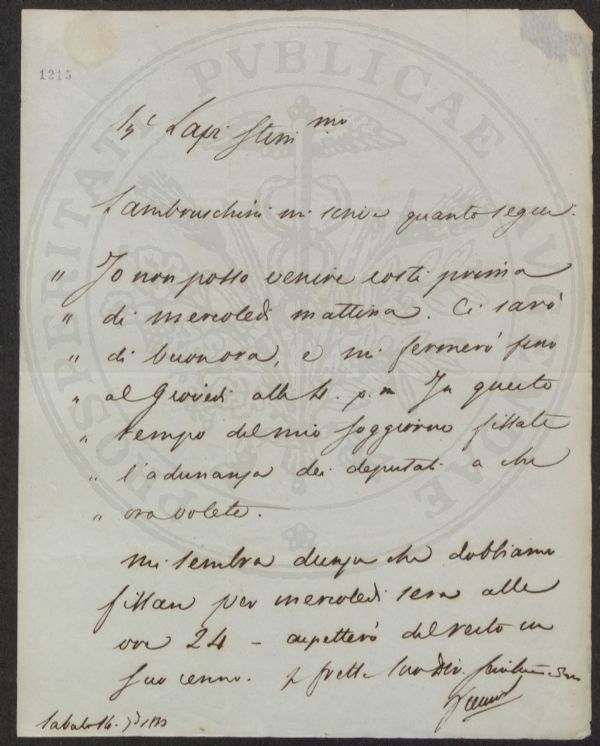 1215
Sig.e Lapi Stim.mo
Lambruschini mi scrive quanto segue:
" Io non posso venire costì prima
" di mercoledì mattina. Ci sarò
" di buonora, e mi fermerò fino
" al Giovedì alle 4. p.m In questo
" tempo del mio soggiorno fissate
" l'adunanza dei deputati a che
" ora volete.
mi sembra dunque che dobbiamo
fissare per mercoledì sera alle
ore 24 – aspetterò del resto un
suo cenno.
Sabato 14.
PVBLICAE